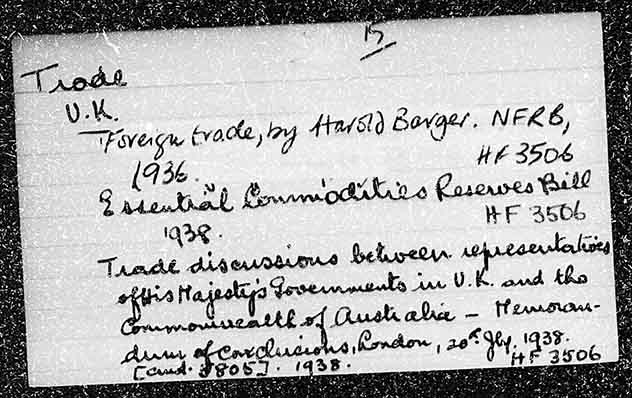 15
Trade
U.K.
Foreign trade, by Harold Barger. NFRB,
1936. HF 3506
Essential Commodities Reserves Bill
1938. HF 3506
Trade discussions between representatives
of His Majesty's Governments in U.K. and the
Commonwealth of Australia - Memoran-
dum of Conclusions, London, 20th Jly, 1938.
[Cmd. 5805]. 1938. HF 3506